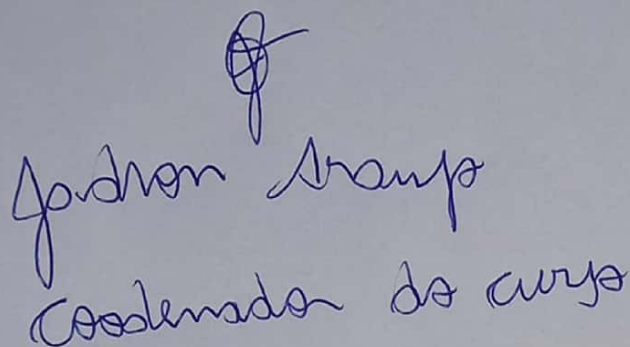 Jadson Araujo
Coordenador do curso